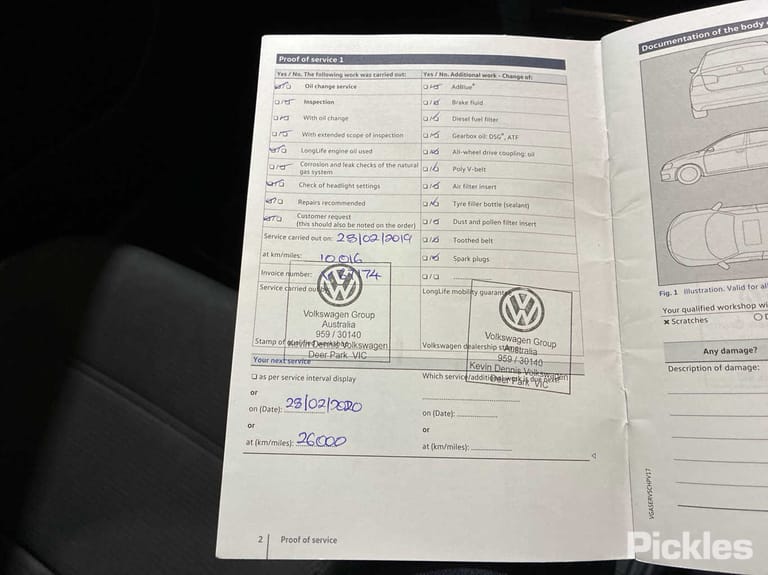 Proof of service 1
Yes / No. The following work was carried out:
Oil change service
Inspection
With oil change
With extended scope of inspection
LongLife engine oil used
Corrosion and leak checks of the natural
gas system
Check of headlight settings
Repairs recommended
Customer request
(this should also be noted on the order)
Service carried out on: 28/02/2019
at km/miles: 10 016
Invoice number:
Service carried out by:
Volkswagen Group
Australia
959 / 30140
Kevin Dennis Volkswagen
Deer Park VIC
Yes / No. Additional work - Change of:
AdBlue®
Brake fluid
Diesel fuel filter
Gearbox oil: DSG®, ATF
All-wheel drive coupling: oil
Poly V-belt
Air filter insert
Tyre filler bottle (sealant)
Dust and pollen filter insert
Toothed belt
Spark plugs
LongLife mobility guarantee
Volkswagen Group
Australia
959 / 30140
Kevin Dennis Volkswagen
Deer Park VIC
Volkswagen dealership stamp
Your next service
as per service interval display
or
on (Date): 28/02/2020
or
at (km/miles): 26000
Which service/additional work is due next?
on (Date):
or
at (km/miles):
2 Proof of service
Documentation of the body
Fig. 1 Illustration. Valid for all
Your qualified workshop wi
× Scratches O D
Any damage?
Description of damage:
VGASERVSCHPV17
Pickles